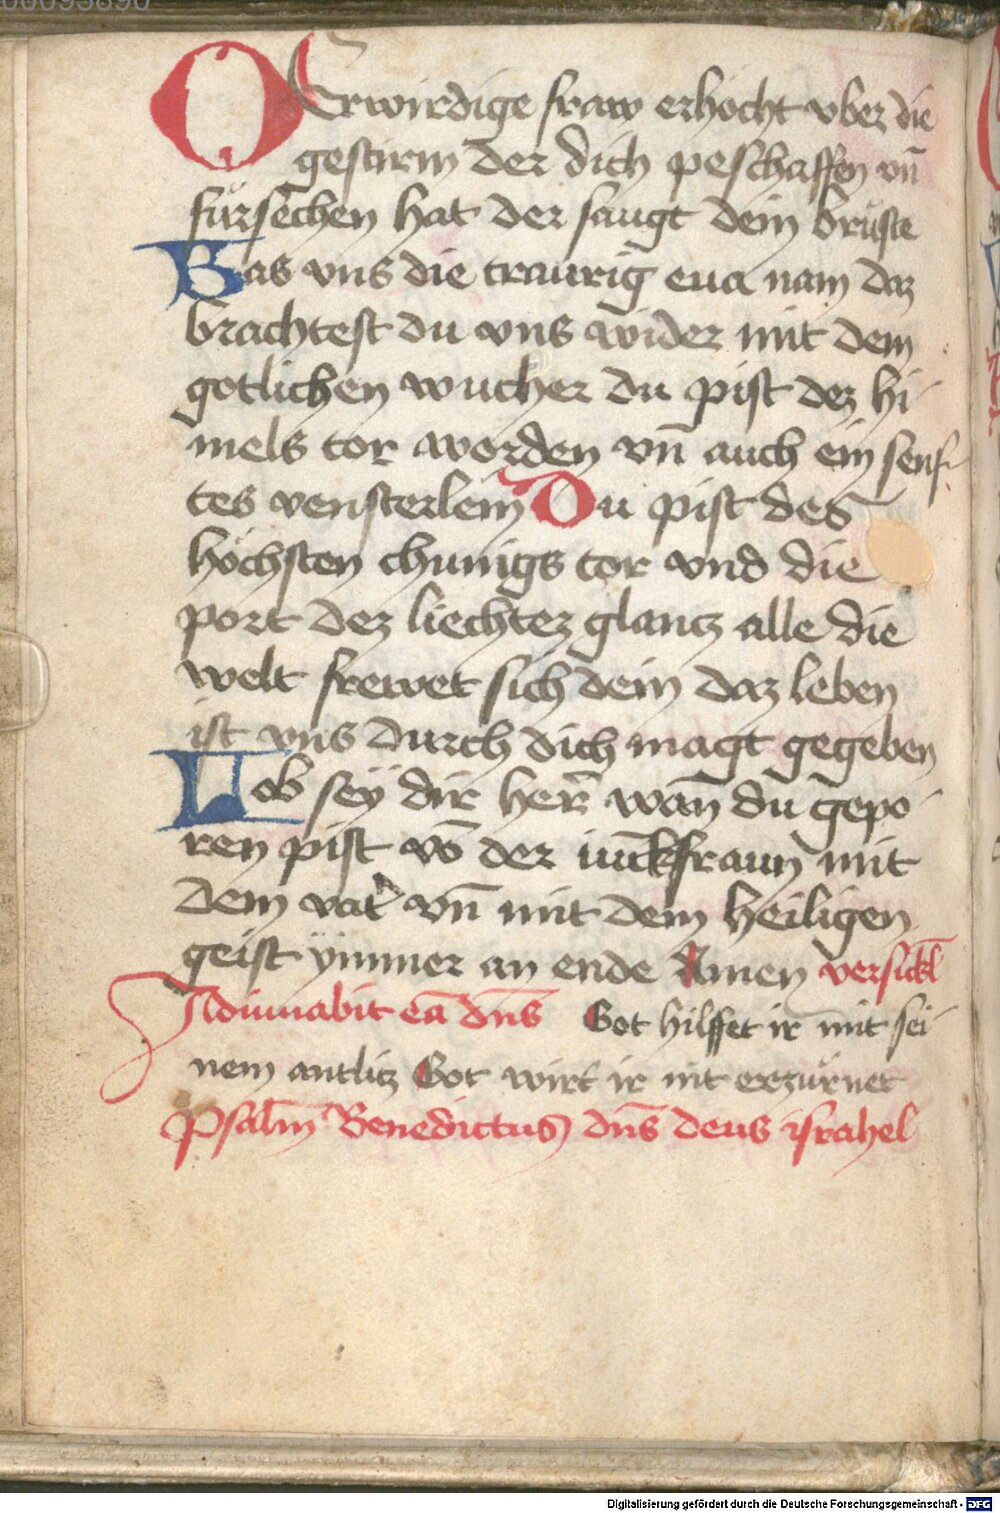 O Erwirdige fraw erhocht vber die
gestirm der dich peschaffen vn̄
fürsechen hat der saugt dein brüste
Bas vns die traurig eua nam daz
brachtest du vns wider mit dem
gotlichen wucher du pist dez hi
mels tor worden vn̄ auch ein senf
tes vensterlein Du pist des
höchsten chunigs tor vnd die
port dez liechtez glantz alle die
welt frewet sich dein daz leben
ist vns durch dich magt gegeben
Lob sey dir her̄ wan̄ du gepo
ren pist vō der iūckfraun mit
dem vat' vn̄ mit dem heiligen
geist ÿmmer an ende Amen versickl̄
Adiuuabit eā dn̄s Got hilffet ir mit sei
nem antlitz Got wirt ir nit erzürnet
psalm̄ Benedictus dn̄s deus israhel
Digitalisierung gefördert durch die Deutsche Forschungsgemeinschaft - DFG